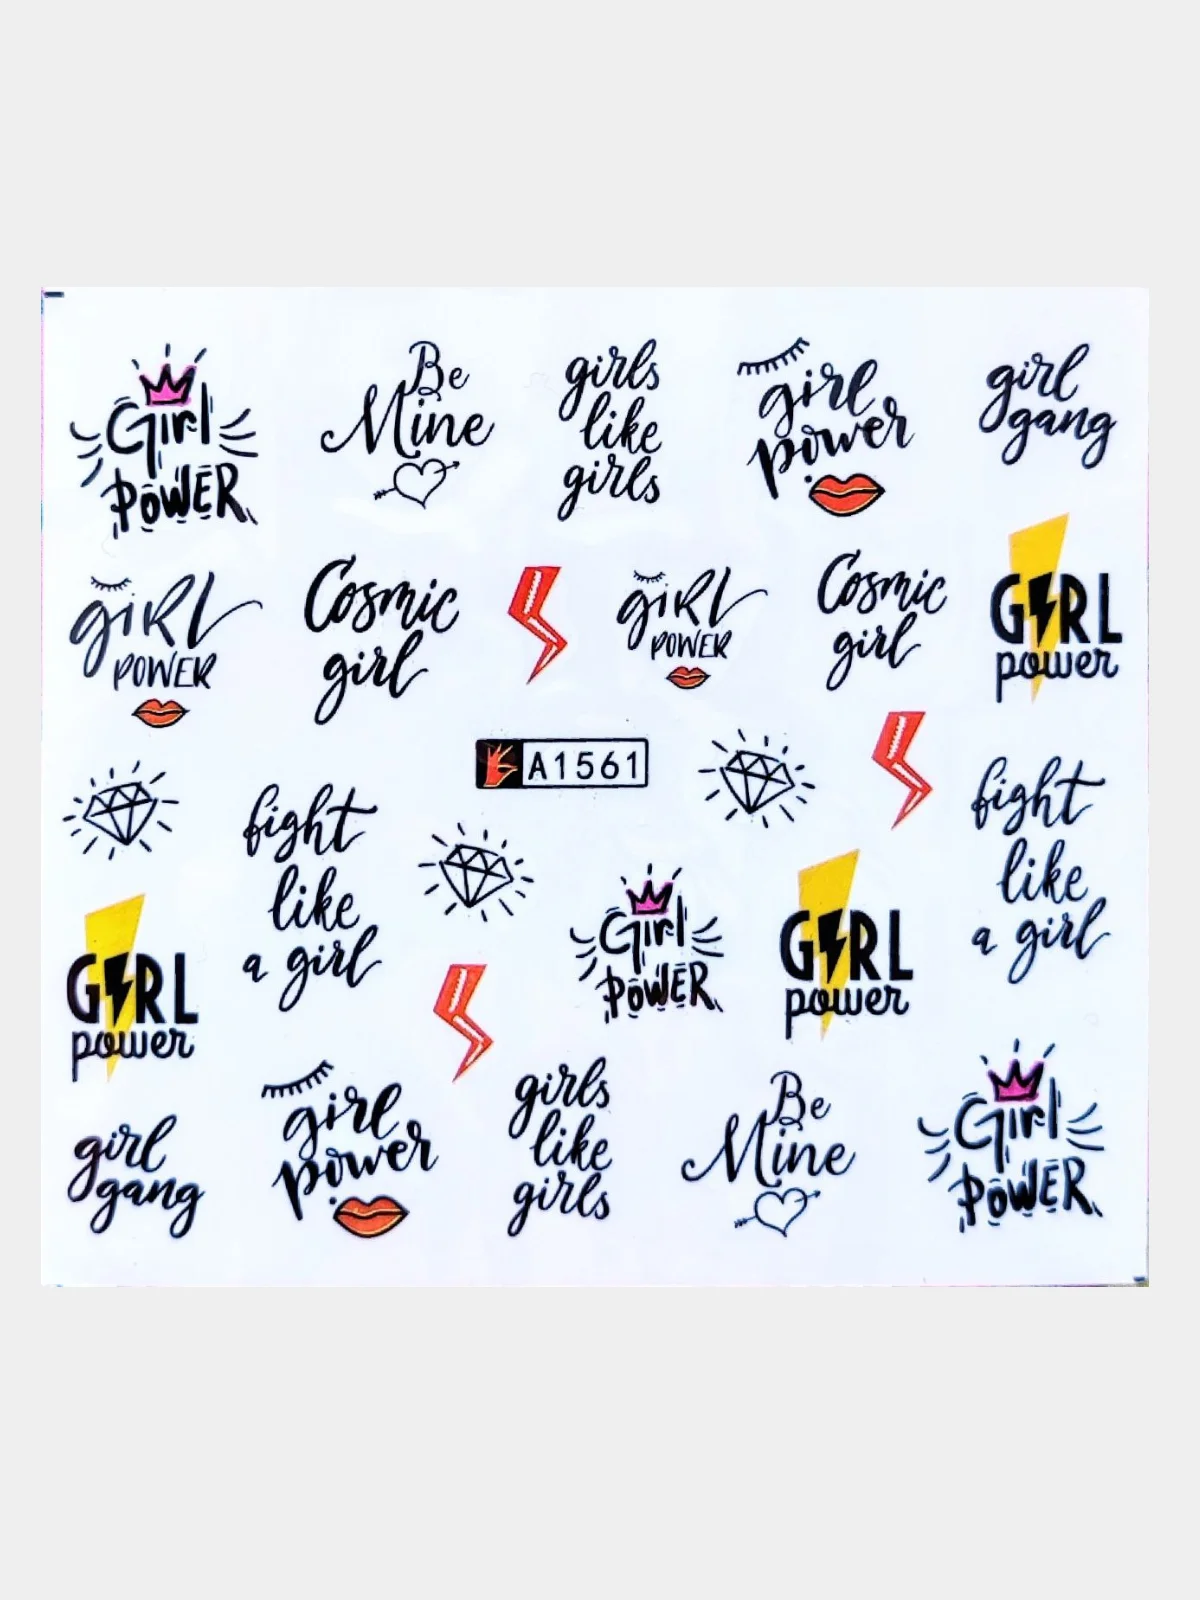 Girl
POWER
Be
Mine
girls
like
girls
girl
power
girl
gang
giRL
POWER
Cosmic
girl
giRL
POWER
Cosmic
girl
GIRL
power
A1561
fight
like
a girl
fight
like
a girl
GIRL
power
Girl
POWER
GIRL
power
girl
gang
girl
power
girls
like
girls
Be
Mine
Girl
POWER